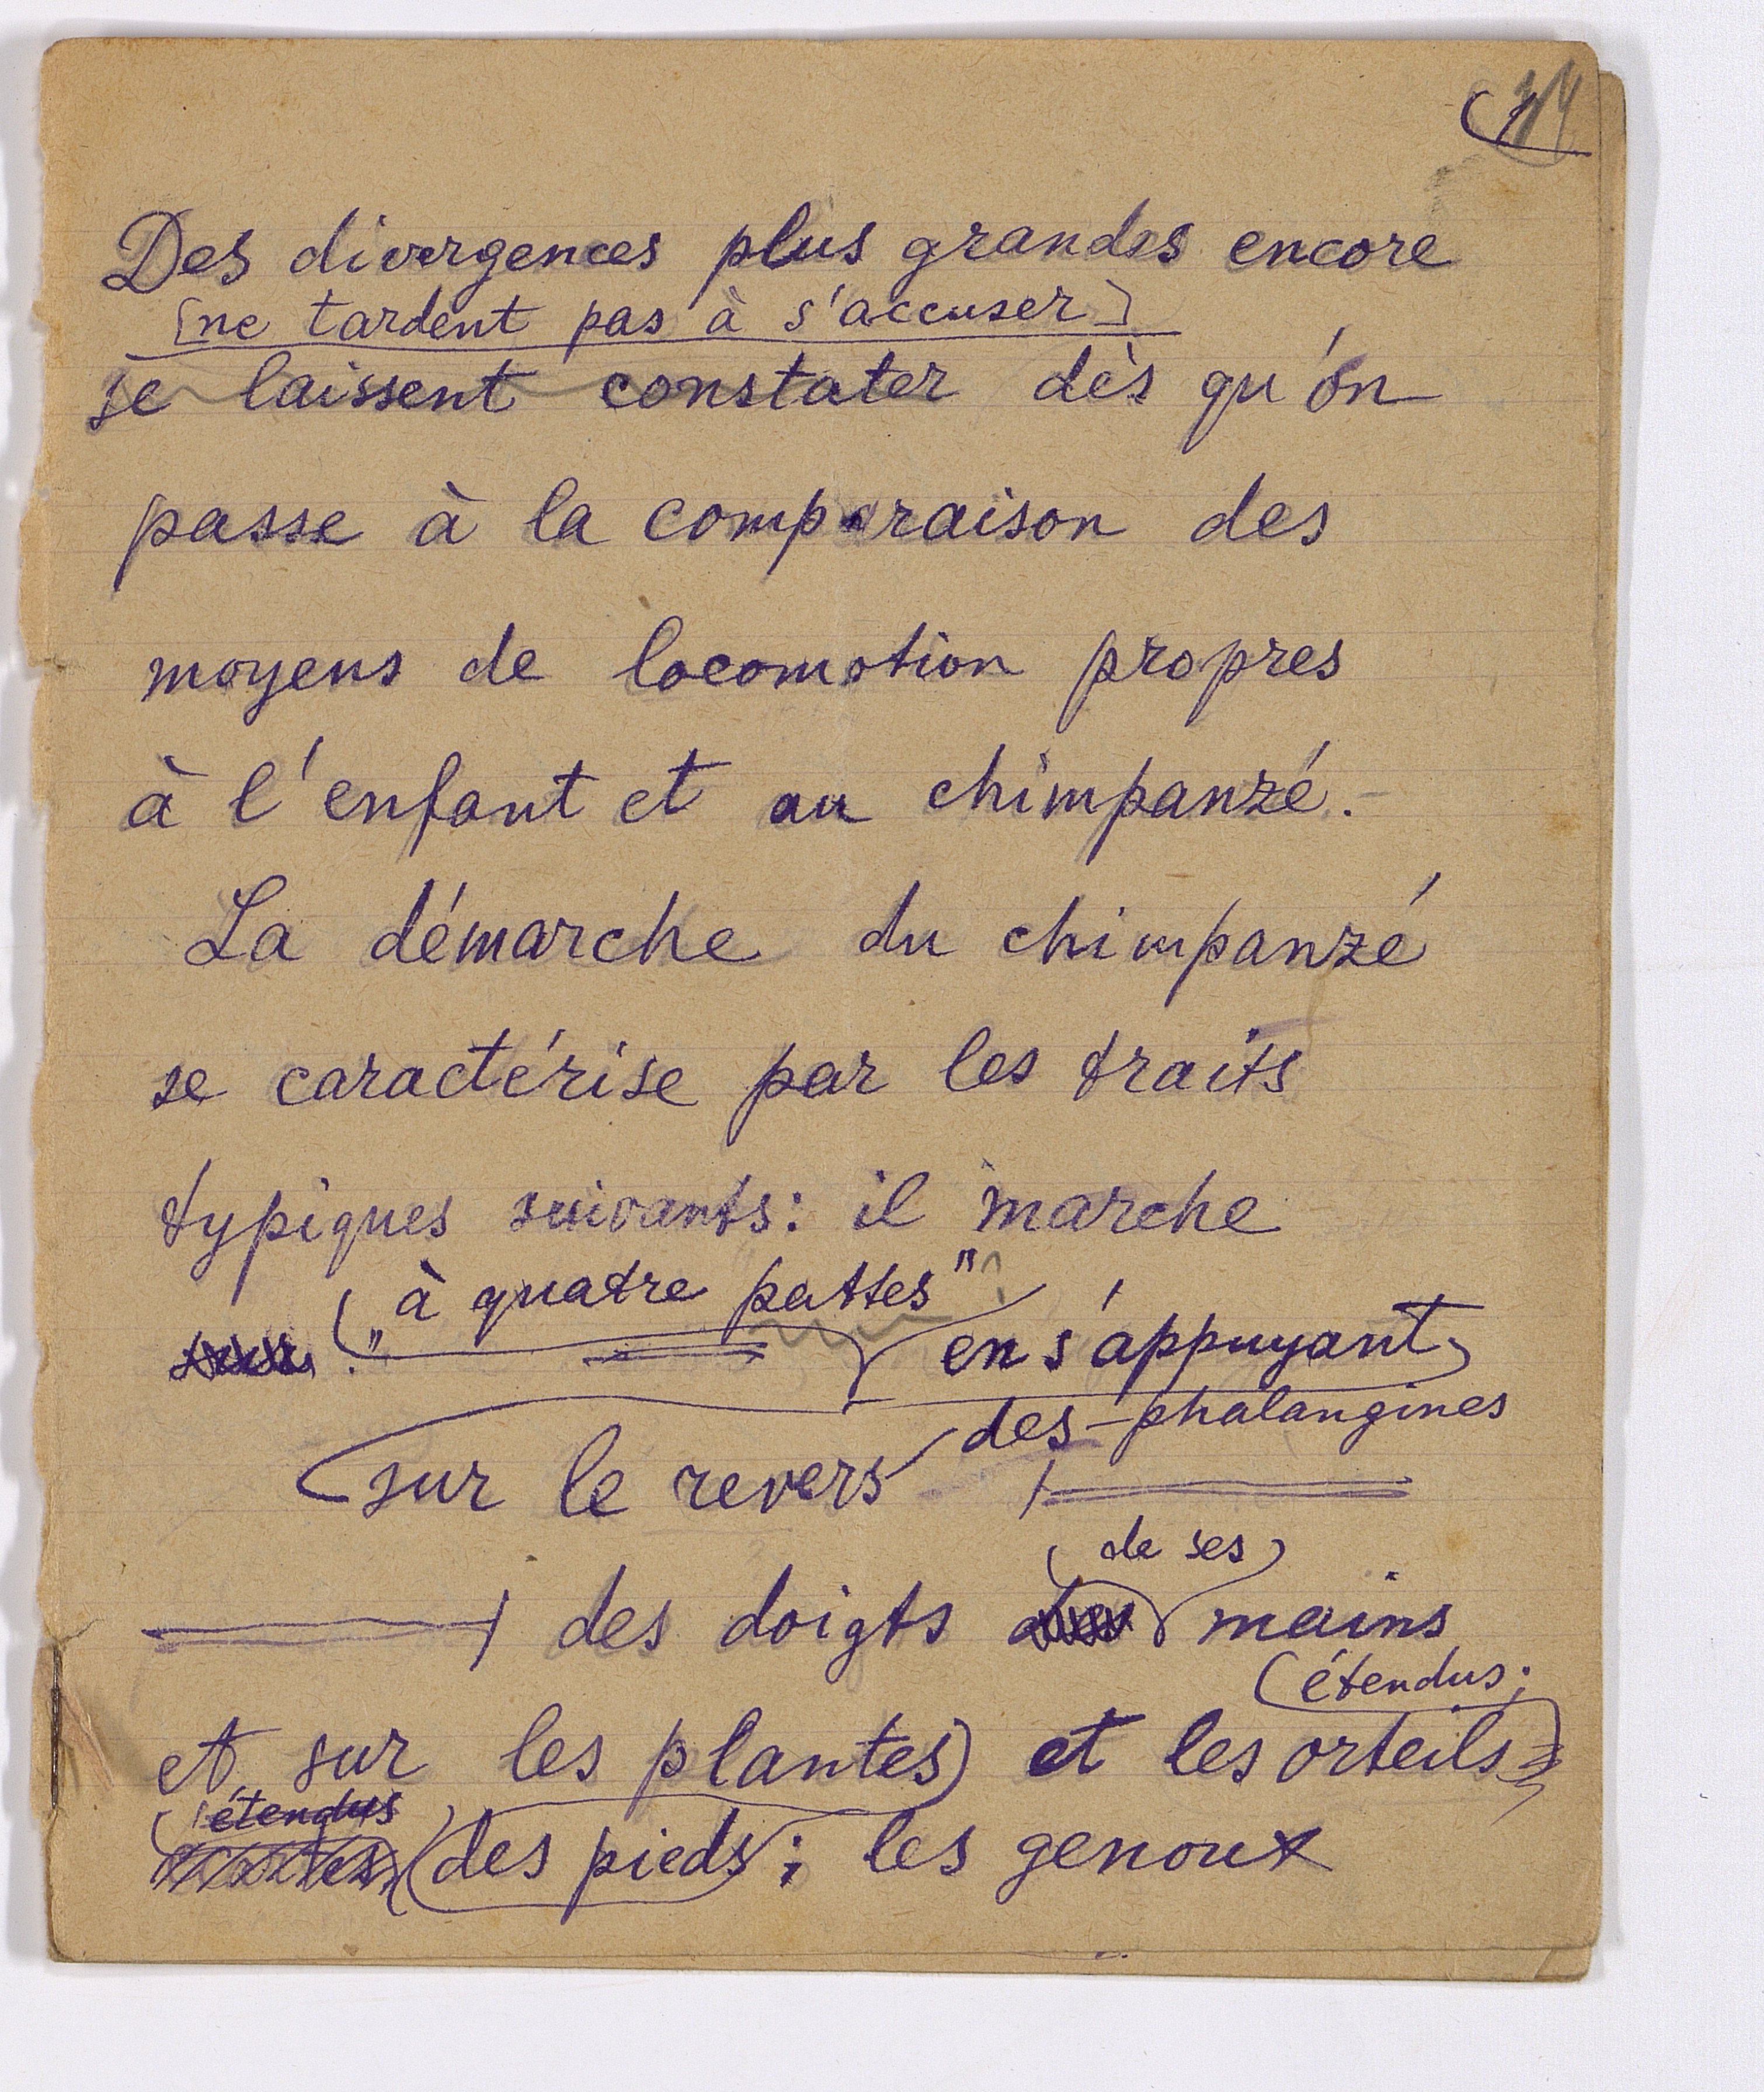 Des divergences plus grandes encore
[ne tardent pas à s'accuser]
se laissent constater dès qu'on
passe à la comparaison des
moyens de locomotion propres
à l'enfant et au chimpanzé.
La démarche du chimpanzé
se caractérise par les traits
typiques suivants: il marche
„à quatre pattes"
en s'appuyant
des phalangines
sur le revers
de ses
des doigts mains
étendus;
et sur les plantes et les orteils
étendus
des pieds; les genoux